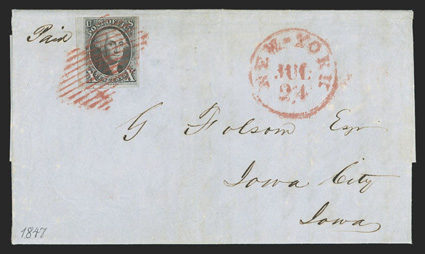 Paid
U S
POST OFFICE
X X
NEW-YORK
JUL
24
G Folsom Esq
Iowa City
Iowa
1847